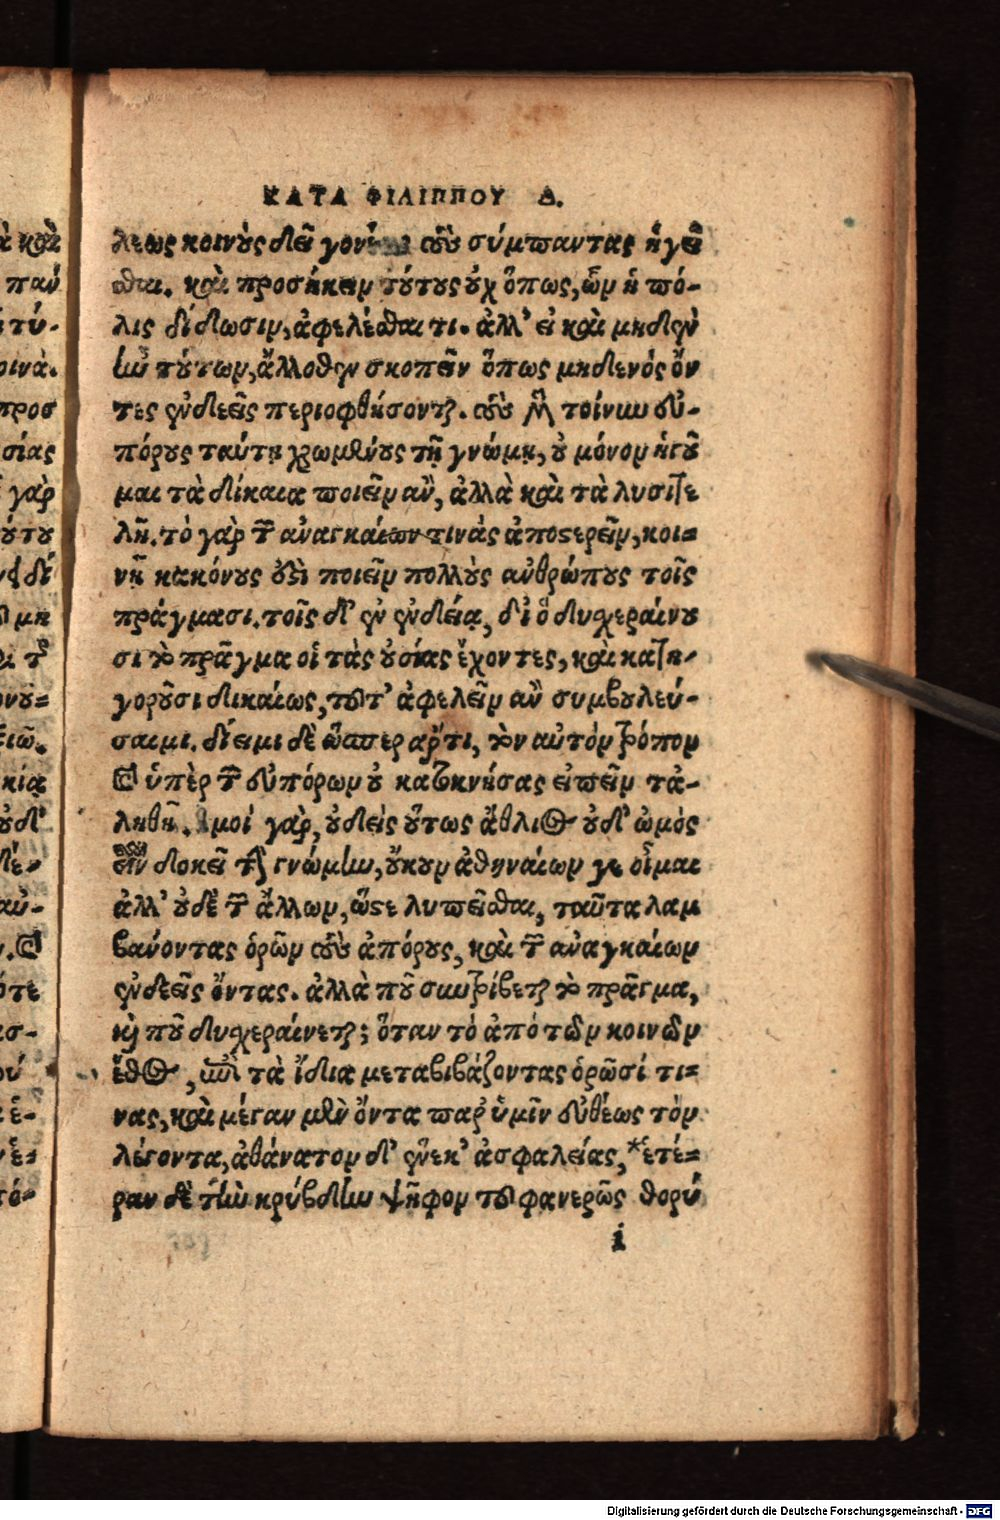 ΚΑΤΑ ΦΙΛΙΠΠΟΥ Δ.
λεως κοινοὺς δεῖ τοὺς σύμπαντας ἡγεῖ
σθαι. καὶ προσήκειν τούτους οὐχ ὅπως, ὧν ἡ πό-
λις δίδωσιν, ἀφελέσθαι τι. ἀλλ' εἰ καὶ μηδὲν
ἦν τούτων, ἄλλοθεν σκοπεῖν ὅπως μηδενός ὄν
τες ἐνδεεῖς περιοφθήσονται. τοὺς μὲν τοίνυν εὐ-
πόρους ταύτῃ χρωμένους τῇ γνώμῃ, οὐ μόνον ἡγοῦ
μαι τὰ δίκαια ποιεῖν ἂν, ἀλλὰ καὶ τὰ λυσιτε
λῆ. τὸ γὰρ τῶν ἀναγκαίων τινάς ἀποστερεῖν, κοι-
νῇ κακόνους ἐστὶ ποιεῖν πολλοὺς ἀνθρώπους τοῖς
πράγμασι. τοῖς δ' ἐν ἐνδείᾳ, δι' ὃ δυσχεραίνου
σι τὸ πρᾶγμα οἱ τὰς οὐσίας ἔχοντες, καὶ κατη-
γοροῦσι δικαίως, τοῦτ' ἀφελεῖν ἂν συμβουλεύ-
σαιμι. δίειμι δὲ ὥσπερ ἄρτι, τὸν αὐτὸν τρόπον
καὶ ὑπὲρ τῶν εὐπόρων οὐ κατοκνήσας εἰπεῖν τἀ-
ληθῆ. ἐμοί γὰρ, οὐδεὶς οὕτως ἄθλιος οὐδ' ὠμὸς
εἶναι δοκεῖ τὴν γνώμην, οὔκουν ἀθηναίων γε οἶμαι
ἀλλ' οὐδὲ τῶν ἄλλων, ὥστε λυπεῖσθαι, ταῦτα λαμ
βανόντας ὁρῶν τοὺς ἀπόρους, καὶ τῶν ἀναγκαίων
ἐνδεεῖς ὄντας. ἀλλὰ ποῦ συντρίβεται τὸ πρᾶγμα,
καὶ ποῦ δυσχεραίνεται; ὅταν τὸ ἀπό τῶν κοινῶν
ἔθος, ἐπὶ τὰ ἴδια μεταβιβάζοντας ὁρῶσί τι-
νας, καὶ μέγαν μὲν ὄντα παρ' ὑμῖν εὐθέως τὸν
λέγοντα, ἀθάνατον δ' ἕνεκ' ἀσφαλείας, *ἑτέ-
ραν δὲ τὴν κρύβδην ψῆφον τοῦ φανερῶς θορύ
i
Digitalisierung gefördert durch die Deutsche Forschungsgemeinschaft - DFG